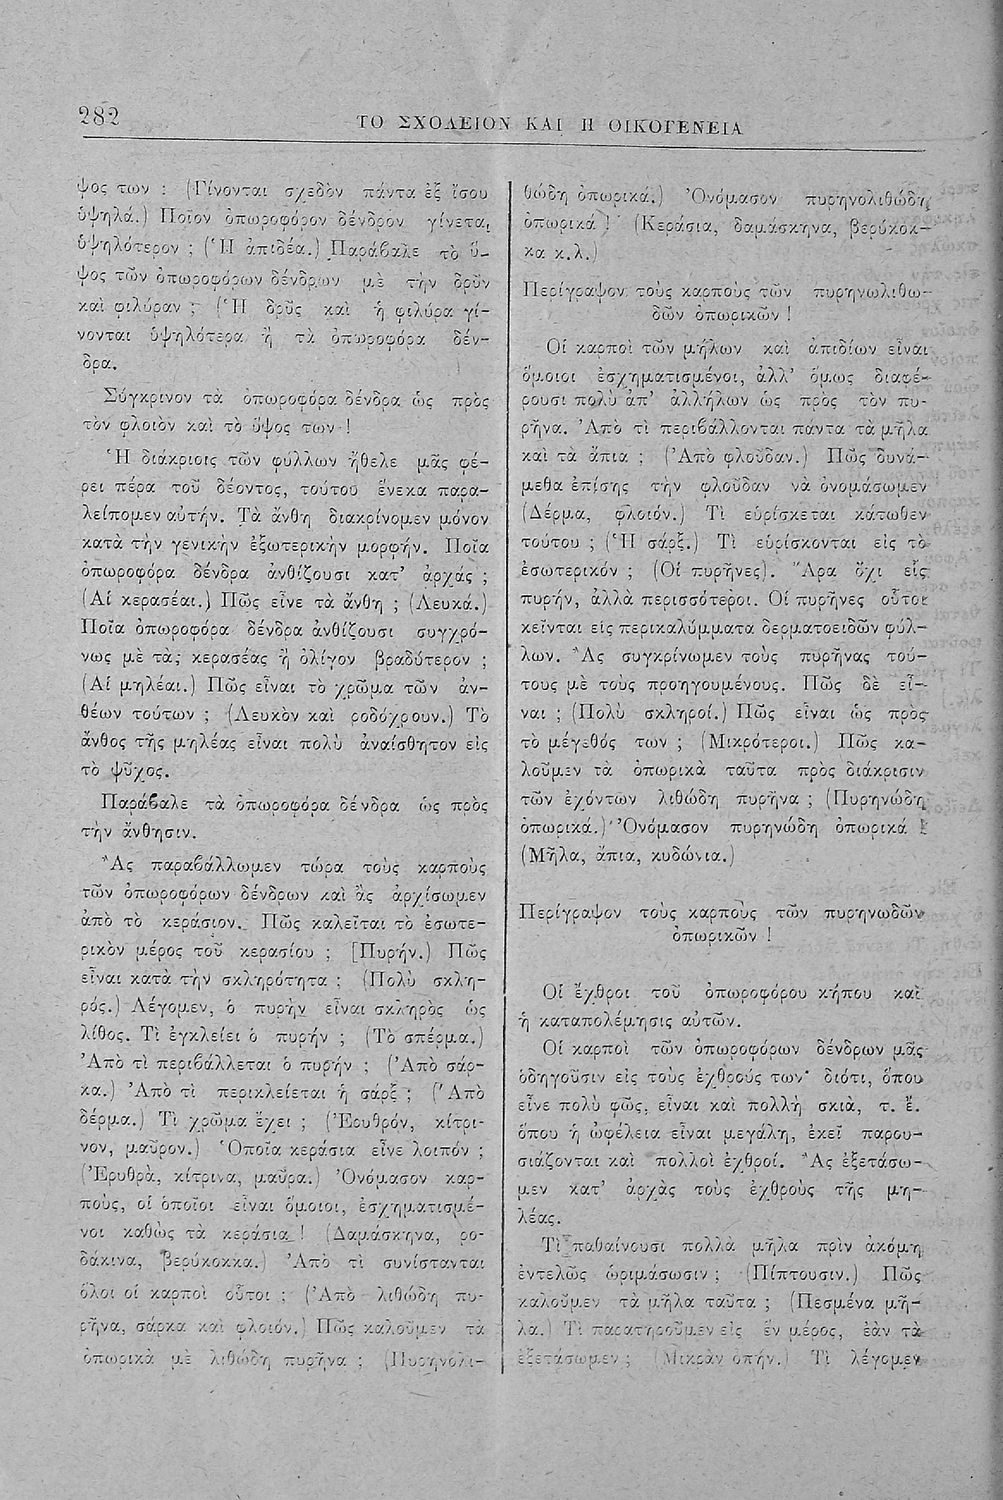 282
ΤΟ ΣΧΟΛΕΙΟΝ ΚΑΙ Η ΟΙΚΟΓΕΝΕΙΑ
ψος των ; (Γίνονται σχεδὸν πάντα ἐξ ἴσου
ὑψηλά.) Ποῖον ὀπωροφόρον δένδρον γίνεται
ὑψηλότερον ; (Ἡ ἀπιδέα.) Παράβαλε τὸ ὕ-
ψος τῶν ὀπωροφόρων δένδρων μὲ τὴν δρῦν
καὶ φιλύραν ; (Ἡ δρῦς καὶ ἡ φιλύρα γί-
νονται ὑψηλότερα ἢ τὰ ὀπωροφόρα δέν-
δρα.
Σύγκρινον τὰ ὀπωροφόρα δένδρα ὡς πρὸς
τὸν φλοιὸν καὶ τὸ ὕψος των !
Ἡ διάκρισις τῶν φύλλων ἤθελε μᾶς φέ-
ρει πέρα τοῦ δέοντος, τούτου ἕνεκα παρα-
λείπομεν αὐτήν. Τὰ ἄνθη διακρίνομεν μόνον
κατὰ τὴν γενικὴν ἐξωτερικὴν μορφήν. Ποῖα
ὀπωροφόρα δένδρα ἀνθίζουσι κατ’ ἀρχάς ;
(Αἱ κερασέαι.) Πῶς εἶνε τὰ ἄνθη ; (Λευκά.)
Ποῖα ὀπωροφόρα δένδρα ἀνθίζουσι συγχρό-
νως μὲ τὰς κερασέας ἢ ὀλίγον βραδύτερον ;
(Αἱ μηλέαι.) Πῶς εἶναι τὸ χρῶμα τῶν ἀν-
θέων τούτων ; (Λευκὸν καὶ ροδόχρουν.) Τὸ
ἄνθος τῆς μηλέας εἶναι πολὺ ἀναίσθητον εἰς
τὸ ψῦχος.
Παράβαλε τὰ ὀπωροφόρα δένδρα ὡς πρὸς
τὴν ἄνθησιν.
Ἂς παραβάλλωμεν τώρα τοὺς καρποὺς
τῶν ὀπωροφόρων δένδρων καὶ ἂς ἀρχίσωμεν
ἀπὸ τὸ κεράσιον. Πῶς καλεῖται τὸ ἐσωτε-
ρικὸν μέρος τοῦ κερασίου ; [Πυρήν.) Πῶς
εἶναι κατὰ τὴν σκληρότητα ; (Πολὺ σκλη-
ρός.) Λέγομεν, ὁ πυρὴν εἶναι σκληρὸς ὡς
λίθος. Τὶ ἐγκλείει ὁ πυρήν ; (Τὸ σπέρμα.)
Ἀπὸ τὶ περιβάλλεται ὁ πυρήν ; (Ἀπὸ σάρ-
κα.) Ἀπὸ τὶ περικλείεται ἡ σάρξ ; (Ἀπὸ
δέρμα.) Τὶ χρῶμα ἔχει ; (Ἐρυθρόν, κίτρι-
νον, μαῦρον.) Ὁποῖα κεράσια εἶνε λοιπόν ;
(Ἐρυθρὰ, κίτρινα, μαῦρα.) Ὀνόμασον καρ-
ποὺς, οἱ ὁποῖοι εἶναι ὅμοιοι, ἐσχηματισμέ-
νοι καθὼς τὰ κεράσια ! (Δαμάσκηνα, ρο-
δάκινα, βερύκοκκα.) Ἀπὸ τὶ συνίστανται
ὅλοι οἱ καρποὶ οὗτοι ; (Ἀπὸ λιθώδη πυ-
ρῆνα, σάρκα καὶ φλοιόν.) Πῶς καλοῦμεν τὰ
ὀπωρικὰ μὲ λιθώδη πυρῆνα ; (Πυρηνολι-
θώδη ὀπωρικά.) Ὀνόμασον πυρηνολιθώδη
ὀπωρικά ! (Κεράσια, δαμάσκηνα, βερύκοκ-
κα κ.λ.)
Περίγραψον τοὺς καρποὺς τῶν πυρηνωλιθω-
δῶν ὀπωρικῶν !
Οἱ καρποὶ τῶν μήλων καὶ ἀπιδίων εἶναι
ὅμοιοι ἐσχηματισμένοι, ἀλλ’ ὅμως διαφέ-
ρουσι πολὺ ἀπ’ ἀλλήλων ὡς πρὸς τὸν πυ-
ρῆνα. Ἀπὸ τὶ περιβάλλονται πάντα τὰ μῆλα
καὶ τὰ ἄπια ; (Ἀπὸ φλοῦδαν.) Πῶς δυνά-
μεθα ἐπίσης τὴν φλοῦδαν νὰ ὀνομάσωμεν
(Δέρμα, φλοιόν.) Τὶ εὑρίσκεται κάτωθεν
τούτου ; (Ἡ σάρξ.) Τὶ εὑρίσκονται εἰς τὸ
ἐσωτερικόν ; (Οἱ πυρῆνες). Ἄρα ὄχι εἷς
πυρήν, ἀλλὰ περισσότεροι. Οἱ πυρῆνες οὗτοι
κεῖνται εἰς περικαλύμματα δερματοειδῶν φύλ-
λων. Ἂς συγκρίνωμεν τοὺς πυρῆνας τού-
τους μὲ τοὺς προηγουμένους. Πῶς δὲ εἶ-
ναι ; (Πολὺ σκληροί.) Πῶς εἶναι ὡς πρὸς
τὸ μέγεθός των ; (Μικρότεροι.) Πῶς κα-
λοῦμεν τὰ ὀπωρικὰ ταῦτα πρὸς διάκρισιν
τῶν ἐχόντων λιθώδη πυρῆνα ; (Πυρηνώδη
ὀπωρικά.) Ὀνόμασον πυρηνώδη ὀπωρικά !
(Μῆλα, ἄπια, κυδώνια.)
Περίγραψον τοὺς καρποὺς τῶν πυρηνωδῶν
ὀπωρικῶν !
Οἱ ἔχθροι τοῦ ὀπωροφόρου κήπου καὶ
ἡ καταπολέμησις αὐτῶν.
Οἱ καρποὶ τῶν ὀπωροφόρων δένδρων μᾶς
ὁδηγοῦσιν εἰς τοὺς ἐχθρούς των· διότι, ὅπου
εἶνε πολὺ φῶς, εἶναι καὶ πολλὴ σκιὰ, τ. ἔ.
ὅπου ἡ ὠφέλεια εἶναι μεγάλη, ἐκεῖ παρου-
σιάζονται καὶ πολλοὶ ἐχθροί. Ἂς ἐξετάσω-
μεν κατ’ ἀρχὰς τοὺς ἐχθροὺς τῆς μη-
λέας.
Τὶ παθαίνουσι πολλὰ μῆλα πρὶν ἀκόμη
ἐντελῶς ὡριμάσωσιν ; (Πίπτουσιν.) Πῶς
καλοῦμεν τὰ μῆλα ταῦτα ; (Πεσμένα μῆ-
λα.) Τὶ παρατηροῦμεν εἰς ἓν μέρος, ἐὰν τὰ
ἐξετάσωμεν ; (Μικρὰν ὀπήν.) Τὶ λέγομεν